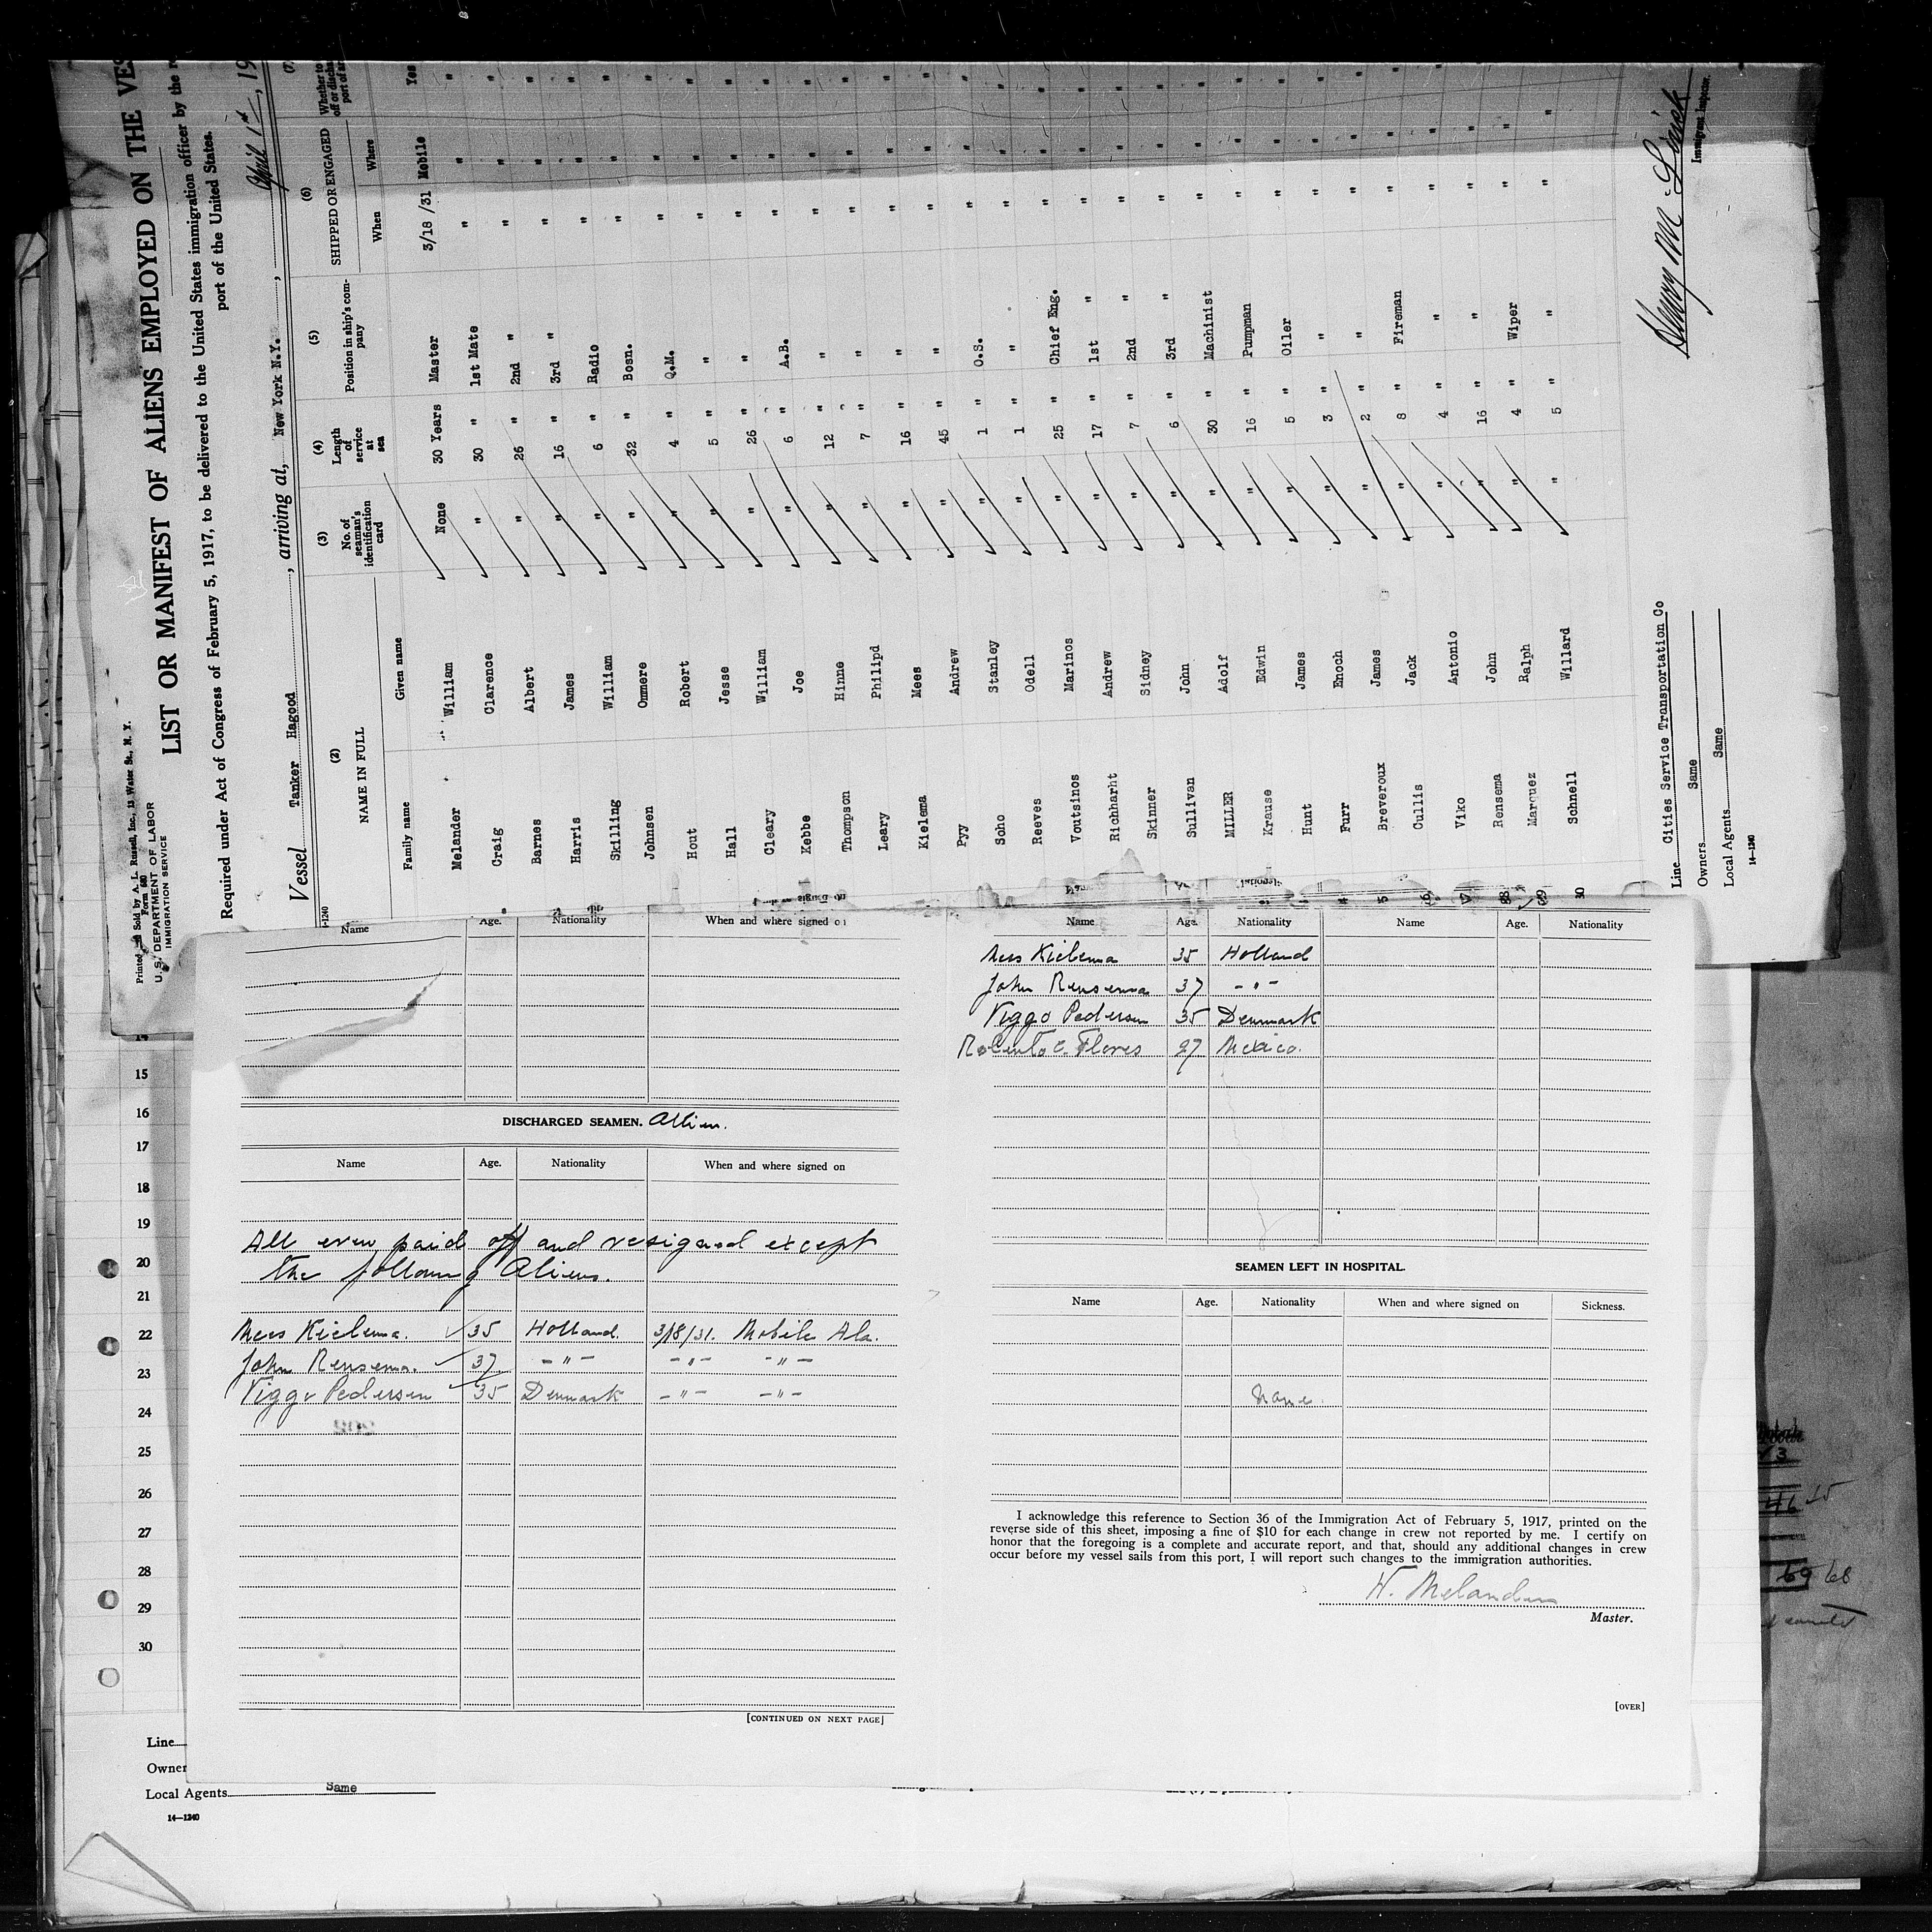 Printed and Sold by A. L. Russell, Inc., 13 Water St., N. Y.
Form 680
U. S. DEPARTMENT OF LABOR
IMMIGRATION SERVICE
LIST OR MANIFEST OF ALIENS EMPLOYED ON THE VES
Required under Act of Congress of February 5, 1917, to be delivered to the United States immigration officer by the r
port of the United States.
Vessel Tanker Hagood, arriving at, New York N.Y., April 1st, 19
(2) (3) (4) (5) (6) (7)
NAME IN FULL No. of seaman's identification card Length of service at sea Position in ship's company SHIPPED OR ENGAGED Whether to
Family name Given name When Where
Melander William None 30 Years Master 3/18/31 Mobile Yes
Craig Clarence " 30 " 1st Mate " " "
Barnes Albert " 26 " 2nd " " " "
Harris James " 16 " 3rd " " " "
Skilling William " 6 " Radio " " "
Johnsen Ommere " 32 " Bosn. " " "
Hout Robert " 4 " Q.M. " " "
Hall Jesse " 5 " " " " "
Cleary William " 26 " " " " "
Kebbe Joe " 6 " A.B. " " "
Thompson Hinne " 12 " " " " "
Leary Philipd " 7 " " " " "
Kielema Mees " 16 " " " " "
Pyy Andrew " 45 " " " " "
Soho Stanley " 1 " O.S. " " "
Reeves Odell " 1 " " " " "
Voutsinos Marinos " 25 " Chief Eng. " " "
Richharht Andrew " 17 " 1st " " " "
Skinner Sidney " 7 " 2nd " " " "
Sullivan John " 6 " 3rd " " " "
MILLER Adolf " 30 " Machinist " " "
Krause Edwin " 16 " Pumpman " " "
Hunt James " 5 " Oiler " " "
Furr Enoch " 3 " " " " "
Breveroux James " 2 " " " " "
Cullis Jack " 8 " Fireman " " "
Viko Antonio " 4 " " " " "
Rensema John " 16 " " " " "
Marquez Ralph " 4 " Wiper " " "
Schnell Willard " 5 " " " " "
Line Cities Service Transportation Co
Owners Same
Local Agents Same
14—1240
Henry M
Immigrant Inspector.
Name Age. Nationality When and where signed on
DISCHARGED SEAMEN. Alien.
Name Age. Nationality When and where signed on
All crew paid off and resigned except
the following Aliens.
Mees Kielema. 35 Holland. 3/18/31. Mobile Ala.
John Rensema. 37 -"- -"- -"-
Viggo Pedersen 35 Denmark -"- -"-
[CONTINUED ON NEXT PAGE]
Name Age. Nationality Name Age. Nationality
Mees Kielema 35 Holland
John Rensema 37 -"-
Viggo Pedersen 35 Denmark
Flores 27 Mexico.
SEAMEN LEFT IN HOSPITAL.
Name Age. Nationality When and where signed on Sickness.
None
I acknowledge this reference to Section 36 of the Immigration Act of February 5, 1917, printed on the
reverse side of this sheet, imposing a fine of $10 for each change in crew not reported by me. I certify on
honor that the foregoing is a complete and accurate report, and that, should any additional changes in crew
occur before my vessel sails from this port, I will report such changes to the immigration authorities.
W. Melander
Master.
[OVER]
15
16
17
18
19
20
21
22
23
24
25
26
27
28
29
30
Line
Owner
Local Agents Same
14—1240